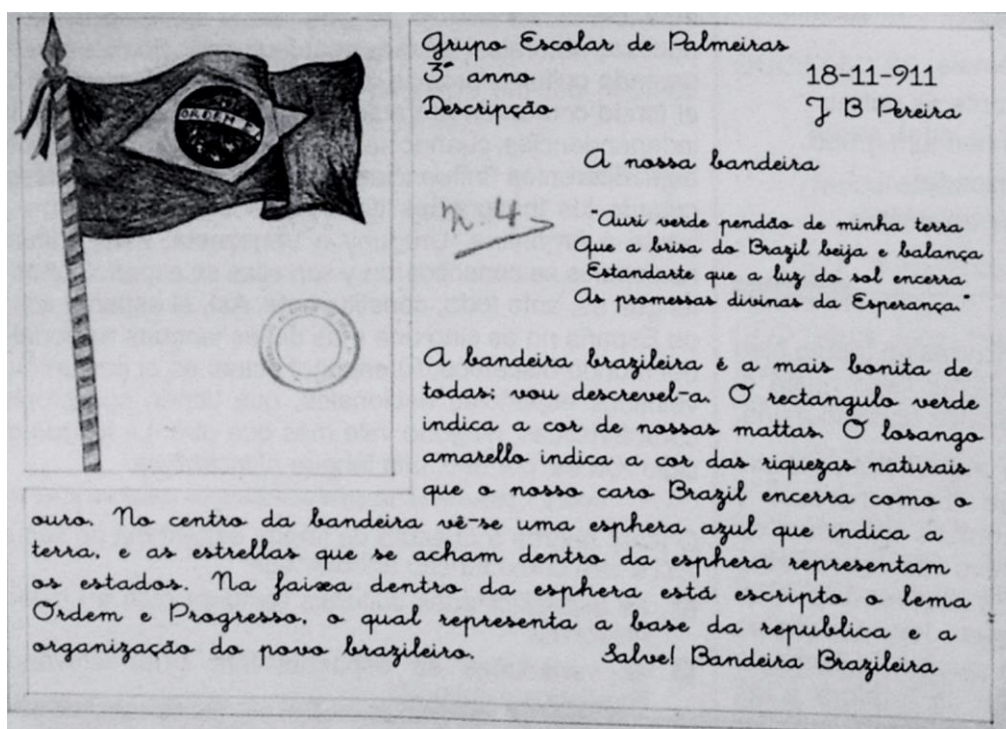 ORDEM E
Grupo Escolar de Palmeiras
3º anno
18-11-911
Descripção
J B Pereira
A nossa bandeira
n. 4
"Auri verde pendão de minha terra
Que a brisa do Brazil beija e balança
Estandarte que a luz do sol encerra
As promessas divinas da Esperança."
A bandeira brazileira é a mais bonita de
todas: vou descrevel-a. O rectangulo verde
indica a cor de nossas mattas. O losango
amarello indica a cor das riquezas naturais
que o nosso caro Brazil encerra como o
ouro. No centro da bandeira vê-se uma esphera azul que indica a
terra, e as estrellas que se acham dentro da esphera representam
os estados. Na faixa dentro da esphera está escripto o lema
Ordem e Progresso, o qual representa a base da republica e a
organização do povo brazileiro.
Salve! Bandeira Brazileira